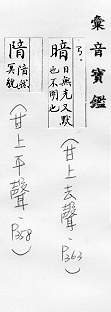 彙音寶鑑
暗
日無光又默
也不明也
(甘上去聲·P363)
陪
陪然
冥貌
(甘上平聲·P358)